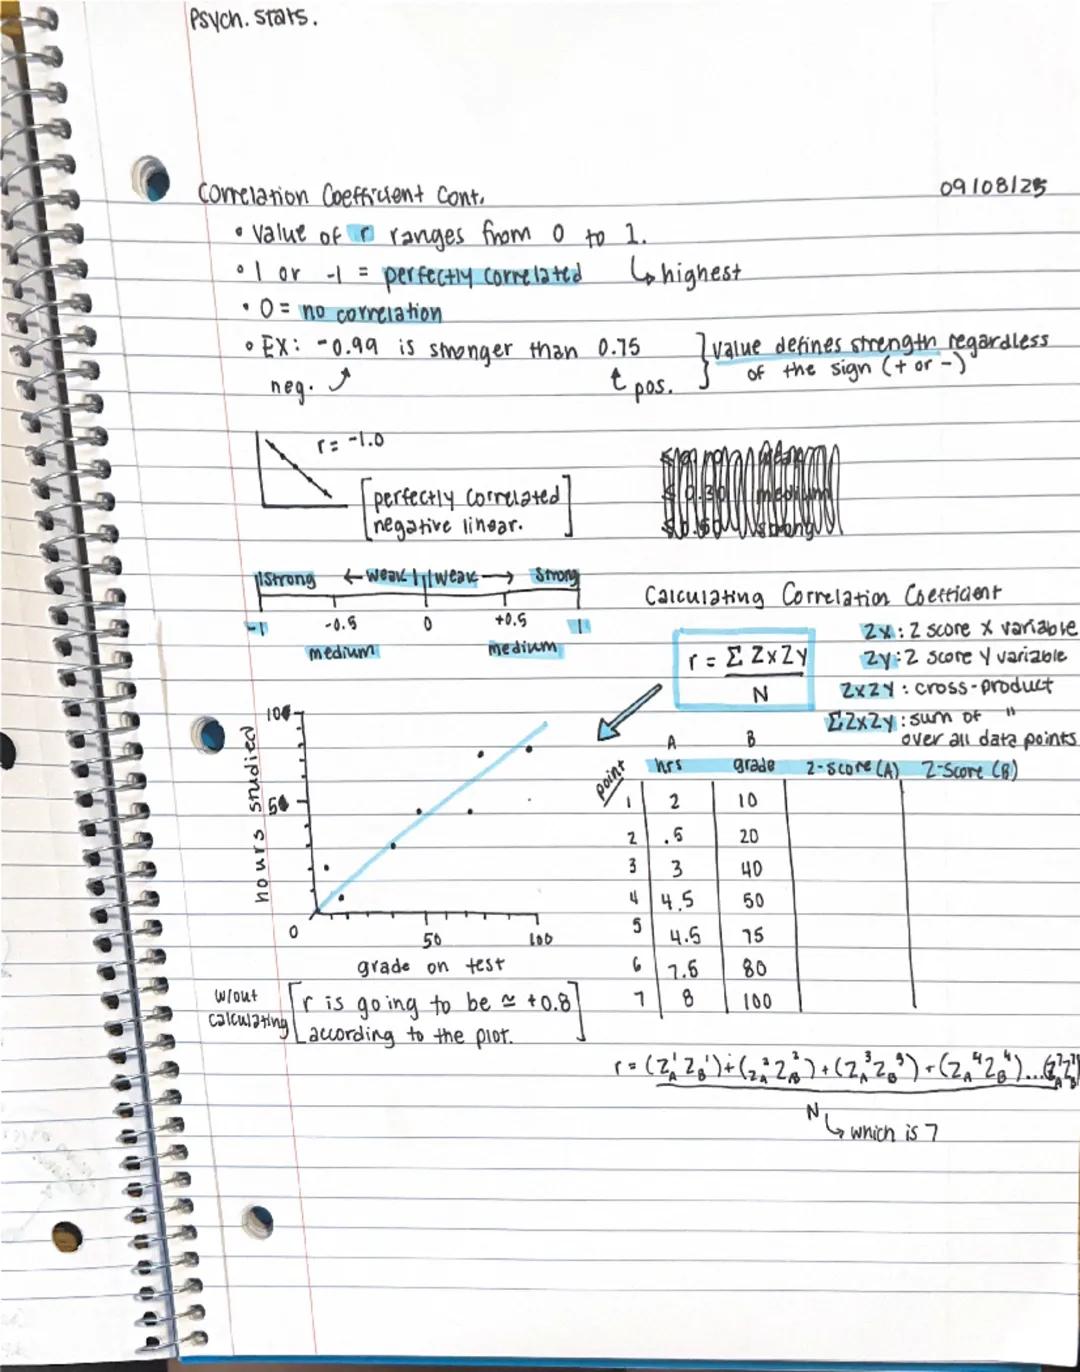 Psych. stats.
Correlation Coefficient Cont.
09/08/25
• Value of r ranges from 0 to 1.
↳ highest
• 1 or -1 = perfectly correlated
• 0 = no correlation
• EX: -0.99 is stronger than 0.75
neg.
pos.
value defines strength regardless
of the sign (+ or -)
r = -1.0
[perfectly correlated
negative linear.]
Strong ← weak | weak → Strong
-1 -0.5 0 +0.5 1
medium medium
Calculating Correlation Coefficient
r = Σ ZxZy
N
Zx : Z score X variable
Zy : Z score Y variable
ZxZy : cross-product
ΣZxZy : sum of "
over all data points
hours studied
100
50
0
50 100
grade on test
w/out
calculating
[r is going to be ≃ +0.8
according to the plot.]
A B
point hrs grade Z-score (A) Z-Score (B)
1 2 10
2 .5 20
3 3 40
4 4.5 50
5 4.5 75
6 7.5 80
7 8 100
r = (Z_A¹ Z_B¹) + (Z_A² Z_B²) + (Z_A³ Z_B³) + (Z_A⁴ Z_B⁴)... (Z_A⁷ Z_B⁷)
N
↳ which is 7